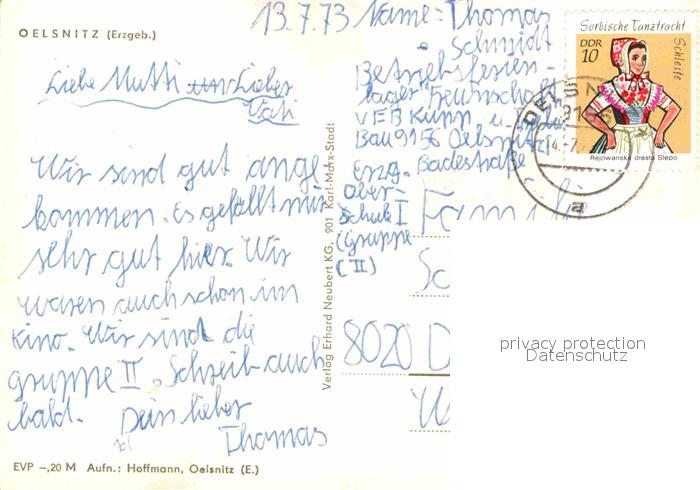 OELSNITZ (Erzgeb.)
Liebe Mutti und Lieber
Vati
Wir sind gut ange-
kommen. Es gefällt mir
sehr gut hier. Wir
waren auch schon im
Kino. Wir sind die
gruppe II. Schreib auch
bald. Dein lieber
Thomas
EVP –,20 M Aufn.: Hoffmann, Oelsnitz (E.)
Verlag Erhard Neubert KG, 901 Karl-Marx-Stadt
13.7.73 Name: Thomas
Schmidt
Betriebsferien-
lager Freundschaft
VEB Kunn. u.
Bau 9156 Oelsnitz
Erzg. Badestraße
Ober-
schule I
(gruppe
(II)
Famili
Sc
8020 D
W
Sorbische Tanztracht
Schleife
DDR
10
Rejowanska drasta Slepo
OELSN
9156
a
privacy protection
Datenschutz